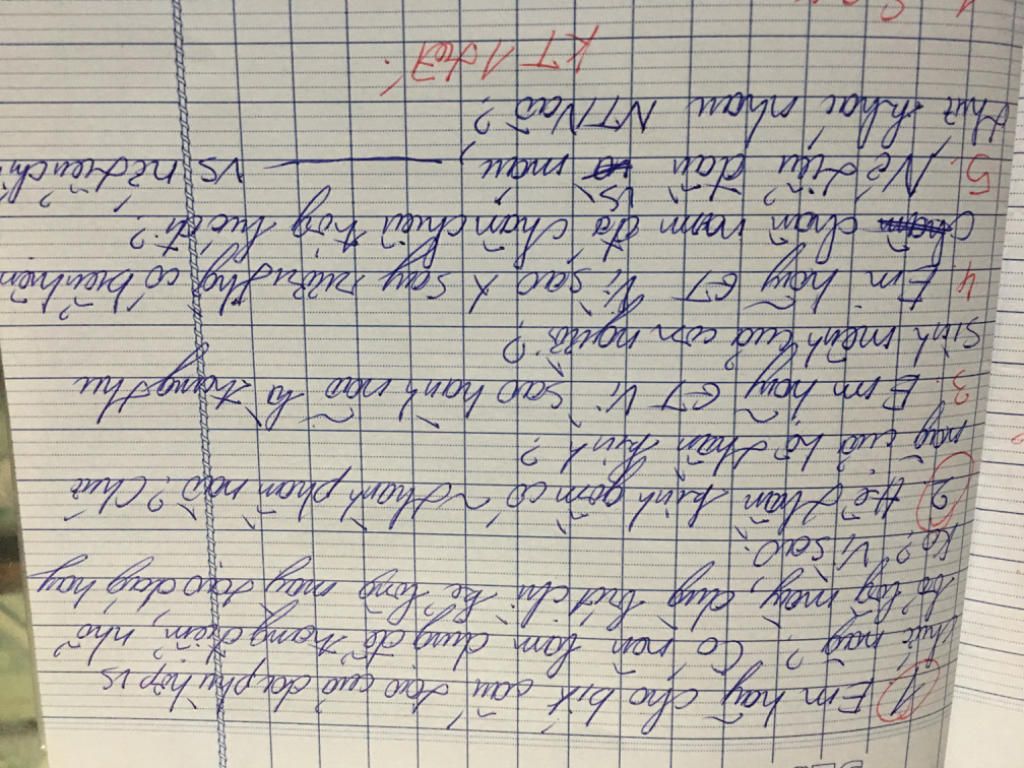 1. Em hãy cho bit cấu tạo của da phù hợp vs
chức năg? Có nên lạm dụng để trang điểm, nhổ
bỏ lôg mày, dùg bút chì kẻ lôg mày tạo dág hay
ko? Vì sao.
2. Hệ thần kinh gồm có thành phần nào? Chức
năg của hệ thần kinh?
3. Em hãy GT vì sao hành não là trung khu
sinh mệnh của con người?
4. Em hãy GT vì sao x say rượu thg có biểu hiện
chân nam đá chân chiêu trog lúc đi?
5. Nê điu dẫn vs máu, vs nê điều chỉ
thứ khác nhau NTNaò?
KT 1 tiết